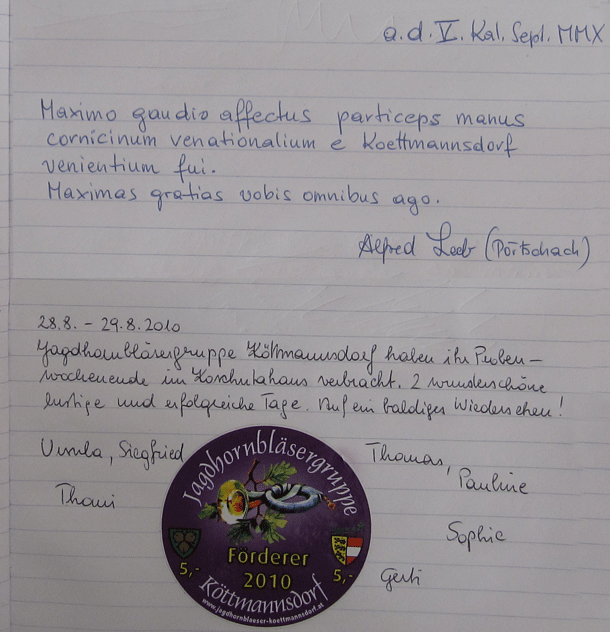 a.d. V. Kal. Sept. MMX
Maximo gaudio affectus particeps manus
cornicinum venationalium e Koettmannsdorf
venientium fui.
Maximas gratias vobis omnibus ago.
Alfred Leeb (Pörtschach)
28.8. - 29.8.2010
Jagdhornbläsergruppe Köttmannsdorf haben ihr Proben-
wochenende im Koschutahaus verbracht. 2 wunderschöne
lustige und erfolgreiche Tage. Auf ein baldiges Wiedersehen!
Ursula, Siegfried
Thomas,
Pauline
Thomi
Sophie
Gerti
Jagdhornbläsergruppe
Förderer
2010
5,-
5,-
Köttmannsdorf
www.jagdhornblaeser-koettmannsdorf.at